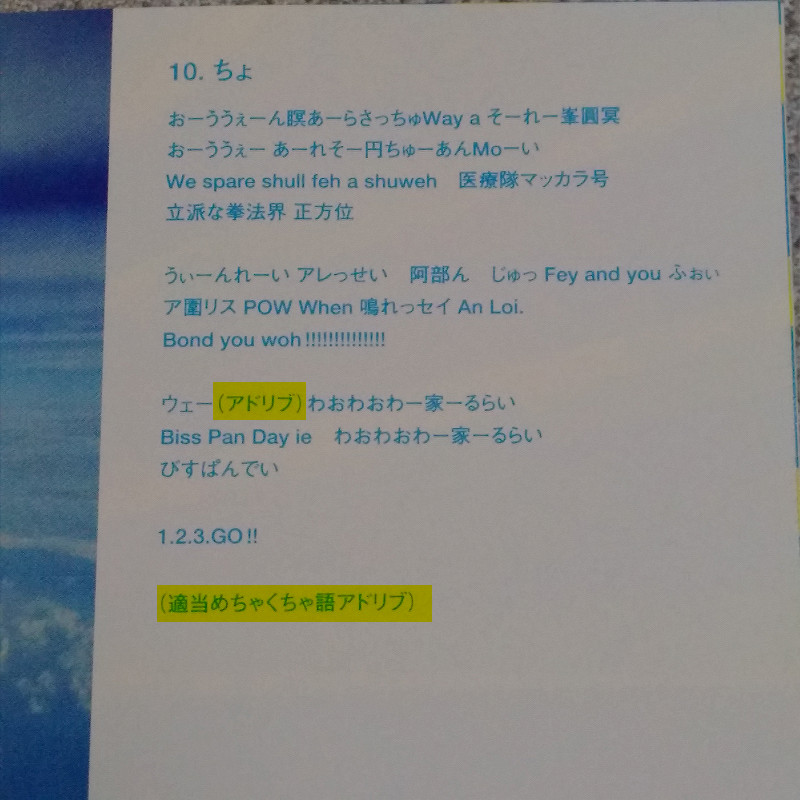 10. ちょ
おーううぇーん瞑あーらさっちゅWay a そーれー峯圓冥
おーううぇー あーれそー円ちゅーあんMoーい
We spare shull feh a shuweh　医療隊マッカラ号
立派な拳法界 正方位
うぃーんれーい アレっせい　阿部ん　じゅっ Fey and you ふぉぃ
ア圍リス POW When 鳴れっセイ An Loi.
Bond you woh!!!!!!!!!!!!!!
ウェー（アドリブ）わおわおわー家ーるらい
Biss Pan Day ie　わおわおわー家ーるらい
びすぱんでい
1.2.3.GO!!
（適当めちゃくちゃ語アドリブ）